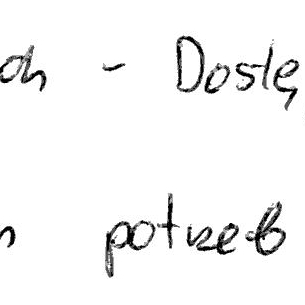 ch - Dostę
potrzeb